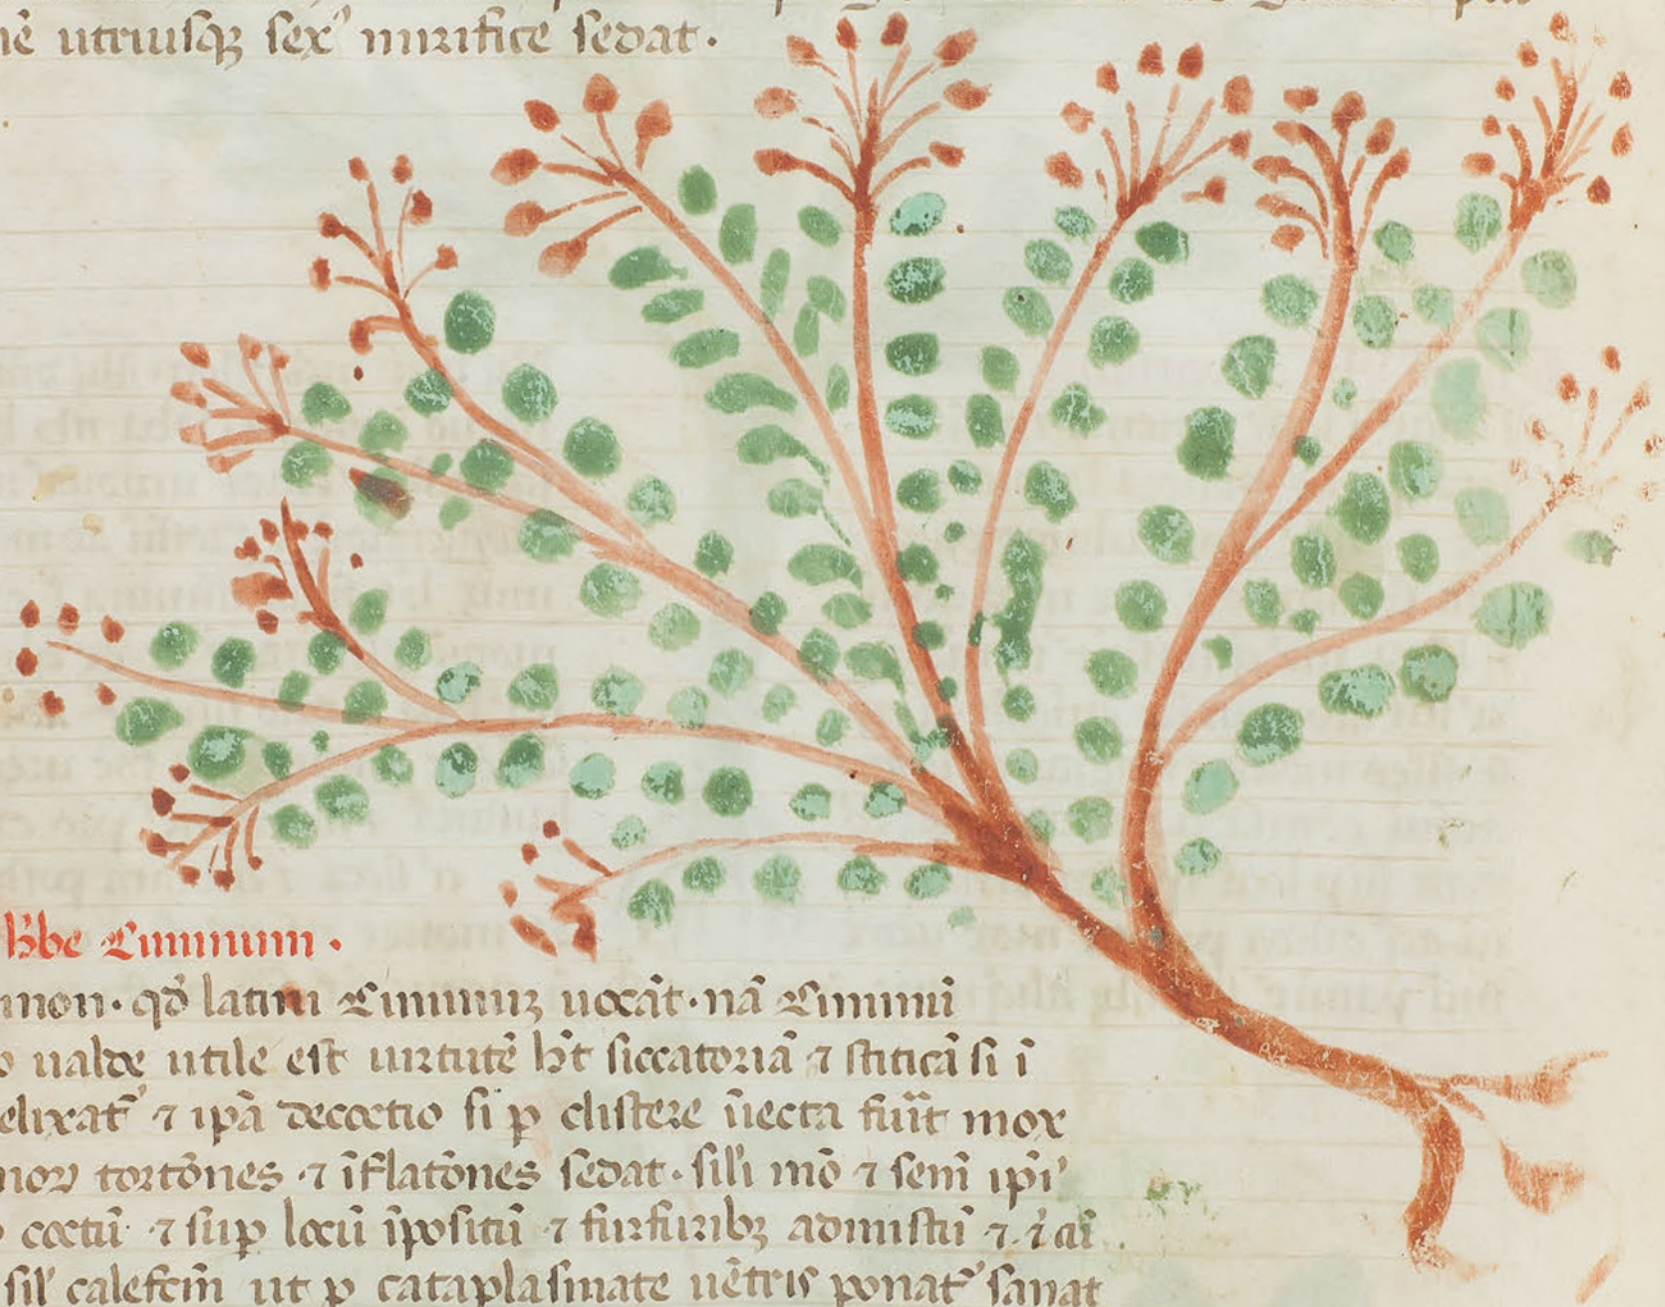 nē utriusqꝫ sex' mirifice sedat.
h̄be Ciminum.
mon. qd̄ latini Ciminuꝫ uocāt. nā Cimini
o ualde utile est uirtutē h̄t siccatoriā ⁊ stiticā si ī
elixat᷑ ⁊ ipā decoctio si ꝑ clistere īiecta fuīt mox
tortōnes ⁊ īflatōnes sedat. sil'i mō ⁊ sem̄ ip̄i'
coctū ⁊ suꝑ locū īpositū ⁊ furfuribꝫ admistū ⁊
sil' calefcm̄ ut ꝑ cataplasmate uētris ponat᷑ sanat